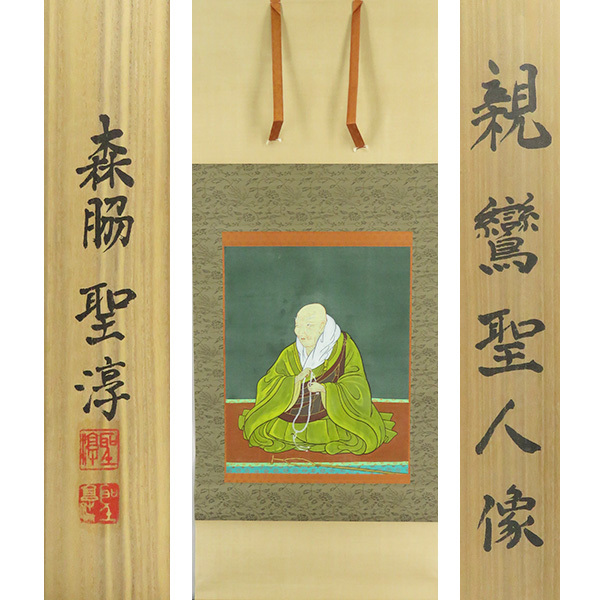 親鸞聖人像
森脇聖淳
聖淳